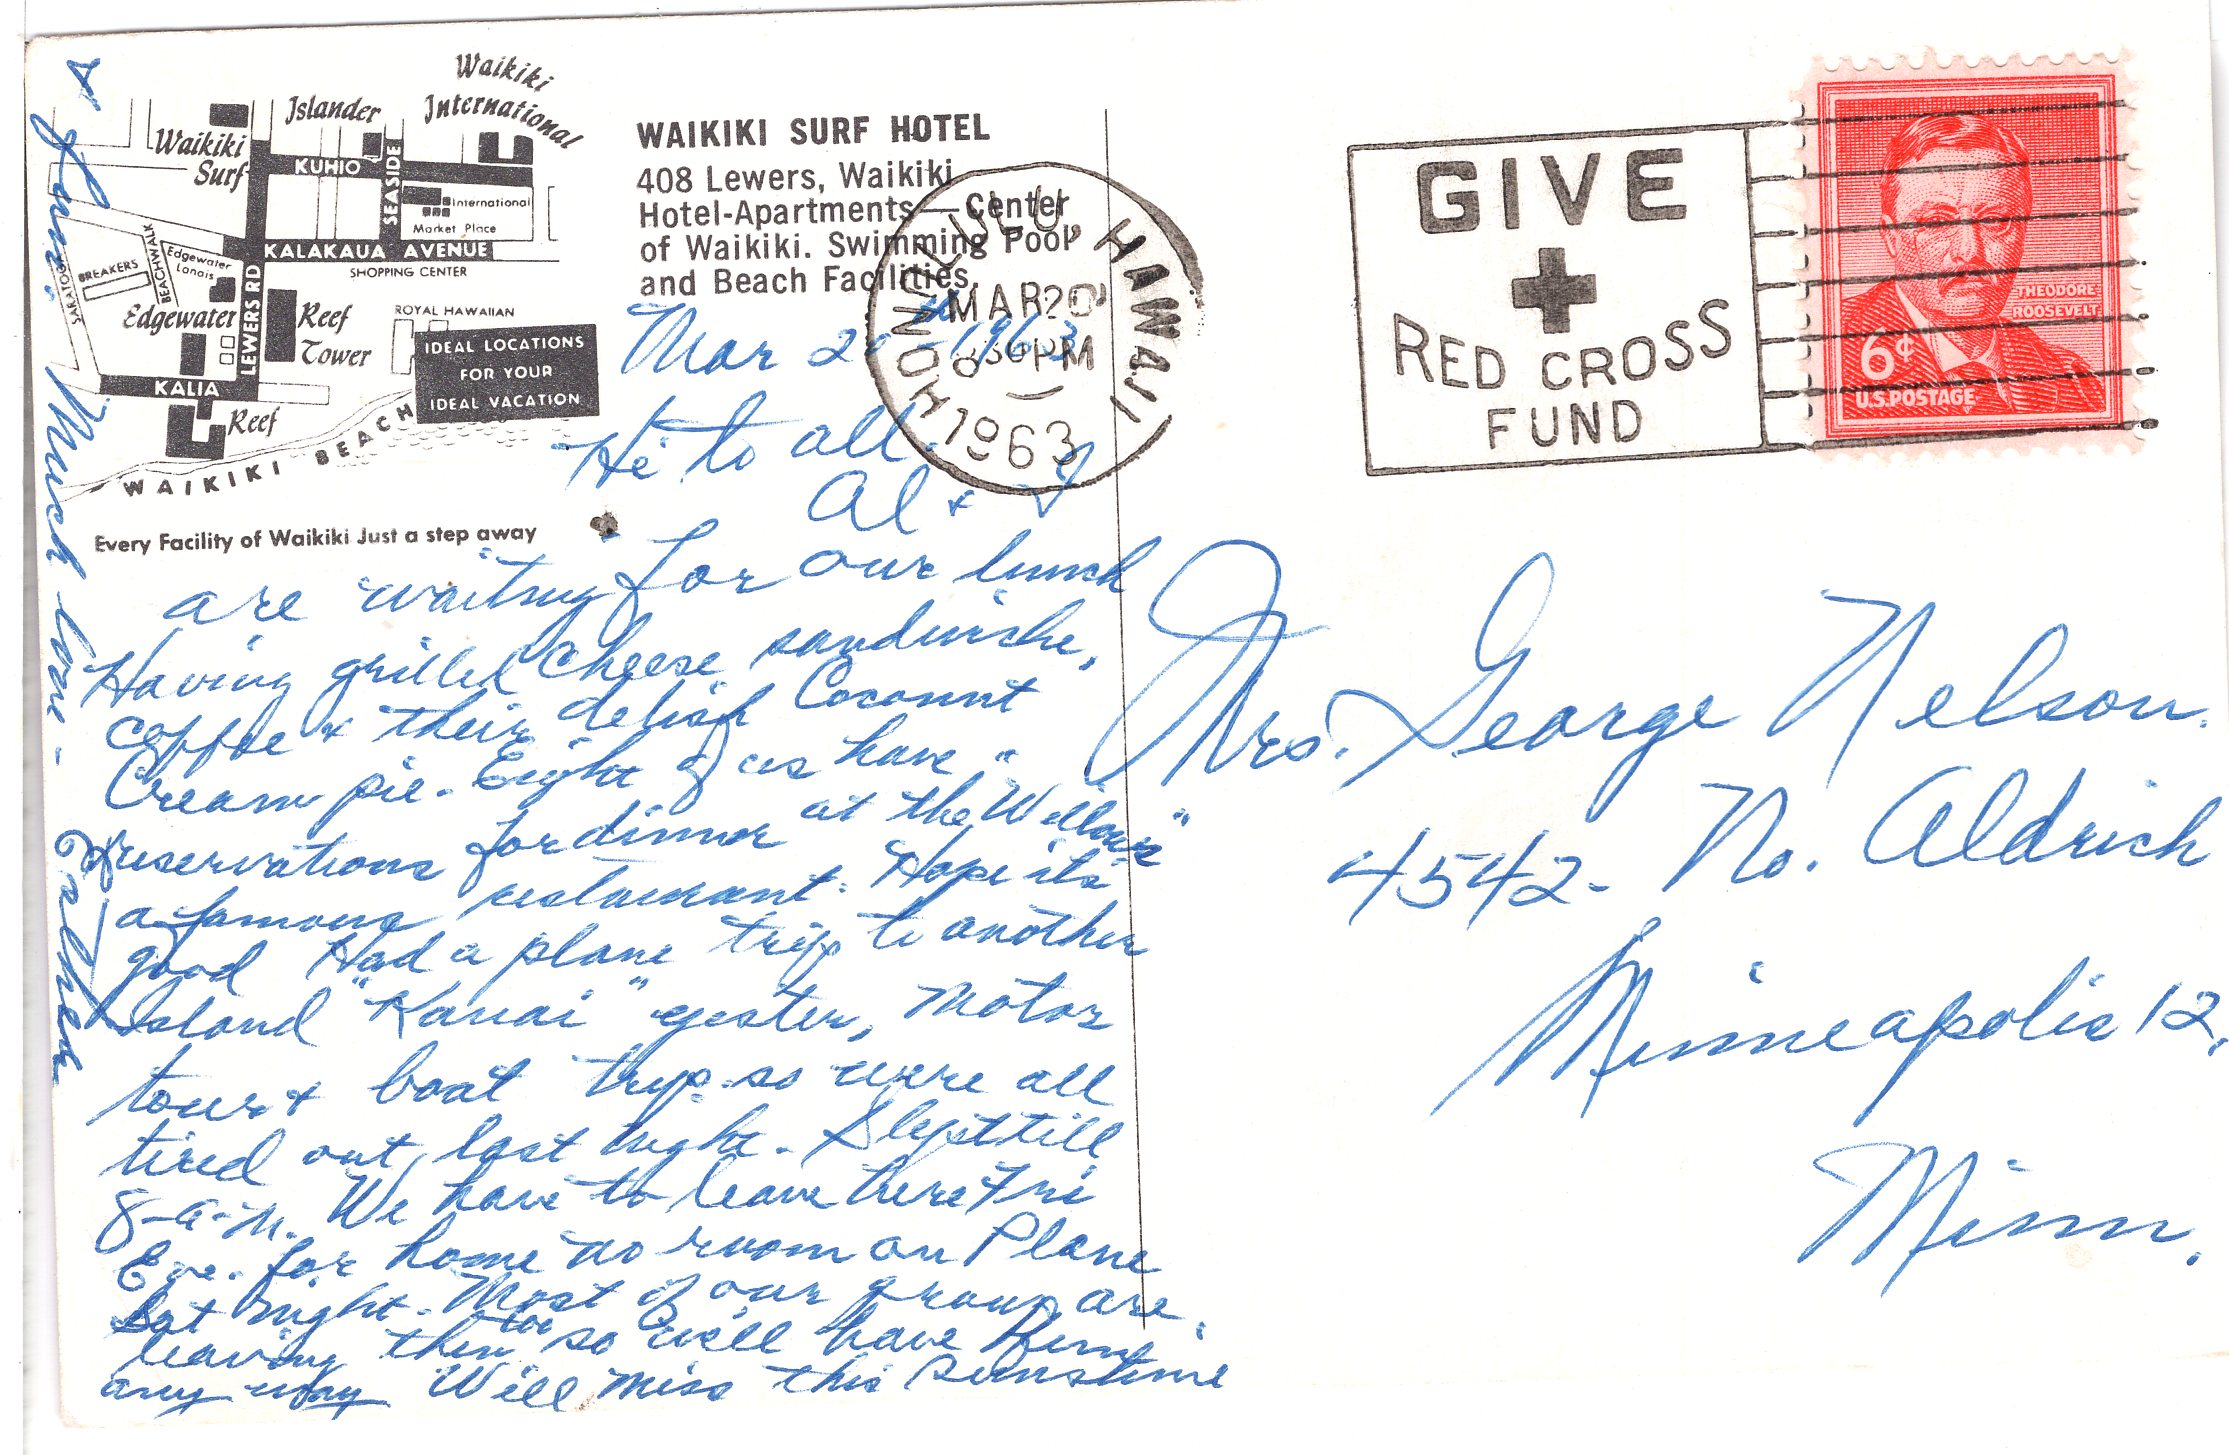 Waikiki
International
Islander
Waikiki
Surf
KUHIO
SEASIDE
International
Market Place
KALAKAUA AVENUE
SHOPPING CENTER
SARATOGA
BREAKERS
BEACHWALK
Edgewater
Lanais
Edgewater
LEWERS RD
Reef
Tower
ROYAL HAWAIIAN
IDEAL LOCATIONS
FOR YOUR
IDEAL VACATION
KALIA
Reef
WAIKIKI BEACH
Every Facility of Waikiki Just a step away
WAIKIKI SURF HOTEL
408 Lewers, Waikiki
Hotel-Apartments—Center
of Waikiki. Swimming Pool
and Beach Facilities.
HONOLULU, HAWAII
MAR 20
PM
1963
GIVE
RED CROSS
FUND
THEODORE
ROOSEVELT
6¢
U.S. POSTAGE
Mar 20th 1963
Hi to all.
Al + I
are waiting for our lunch
Having grilled cheese sandwiche,
coffee + their delish Coconut
Cream pie. Eight of us have
reservations for dinner at the "Willows"
a famous restaurant. Hope its
good Had a plane trip to another
Island "Kauai" yester, motor
tour + boat trip so were all
tired out last night. Slept till
8-a-m. We have to leave here Fri
Eve. for home no room on Plane
Sat night. Most of our group are
leaving then too so we'll have fun
any way Will miss this sunshine
Much love - Esther
Mrs. George Nelson.
4542- No. Aldrich
Minneapolis 12,
Minn.